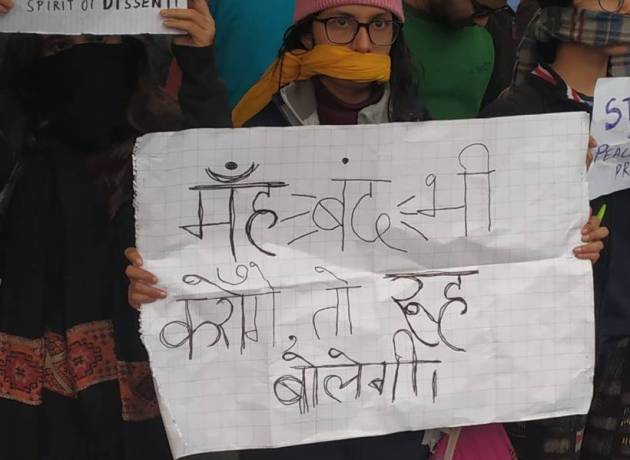 SPIRIT OF DISSENT!
मुँह बंद भी
करोगे तो रूह
बोलेगी।
ST
PEAC
PR